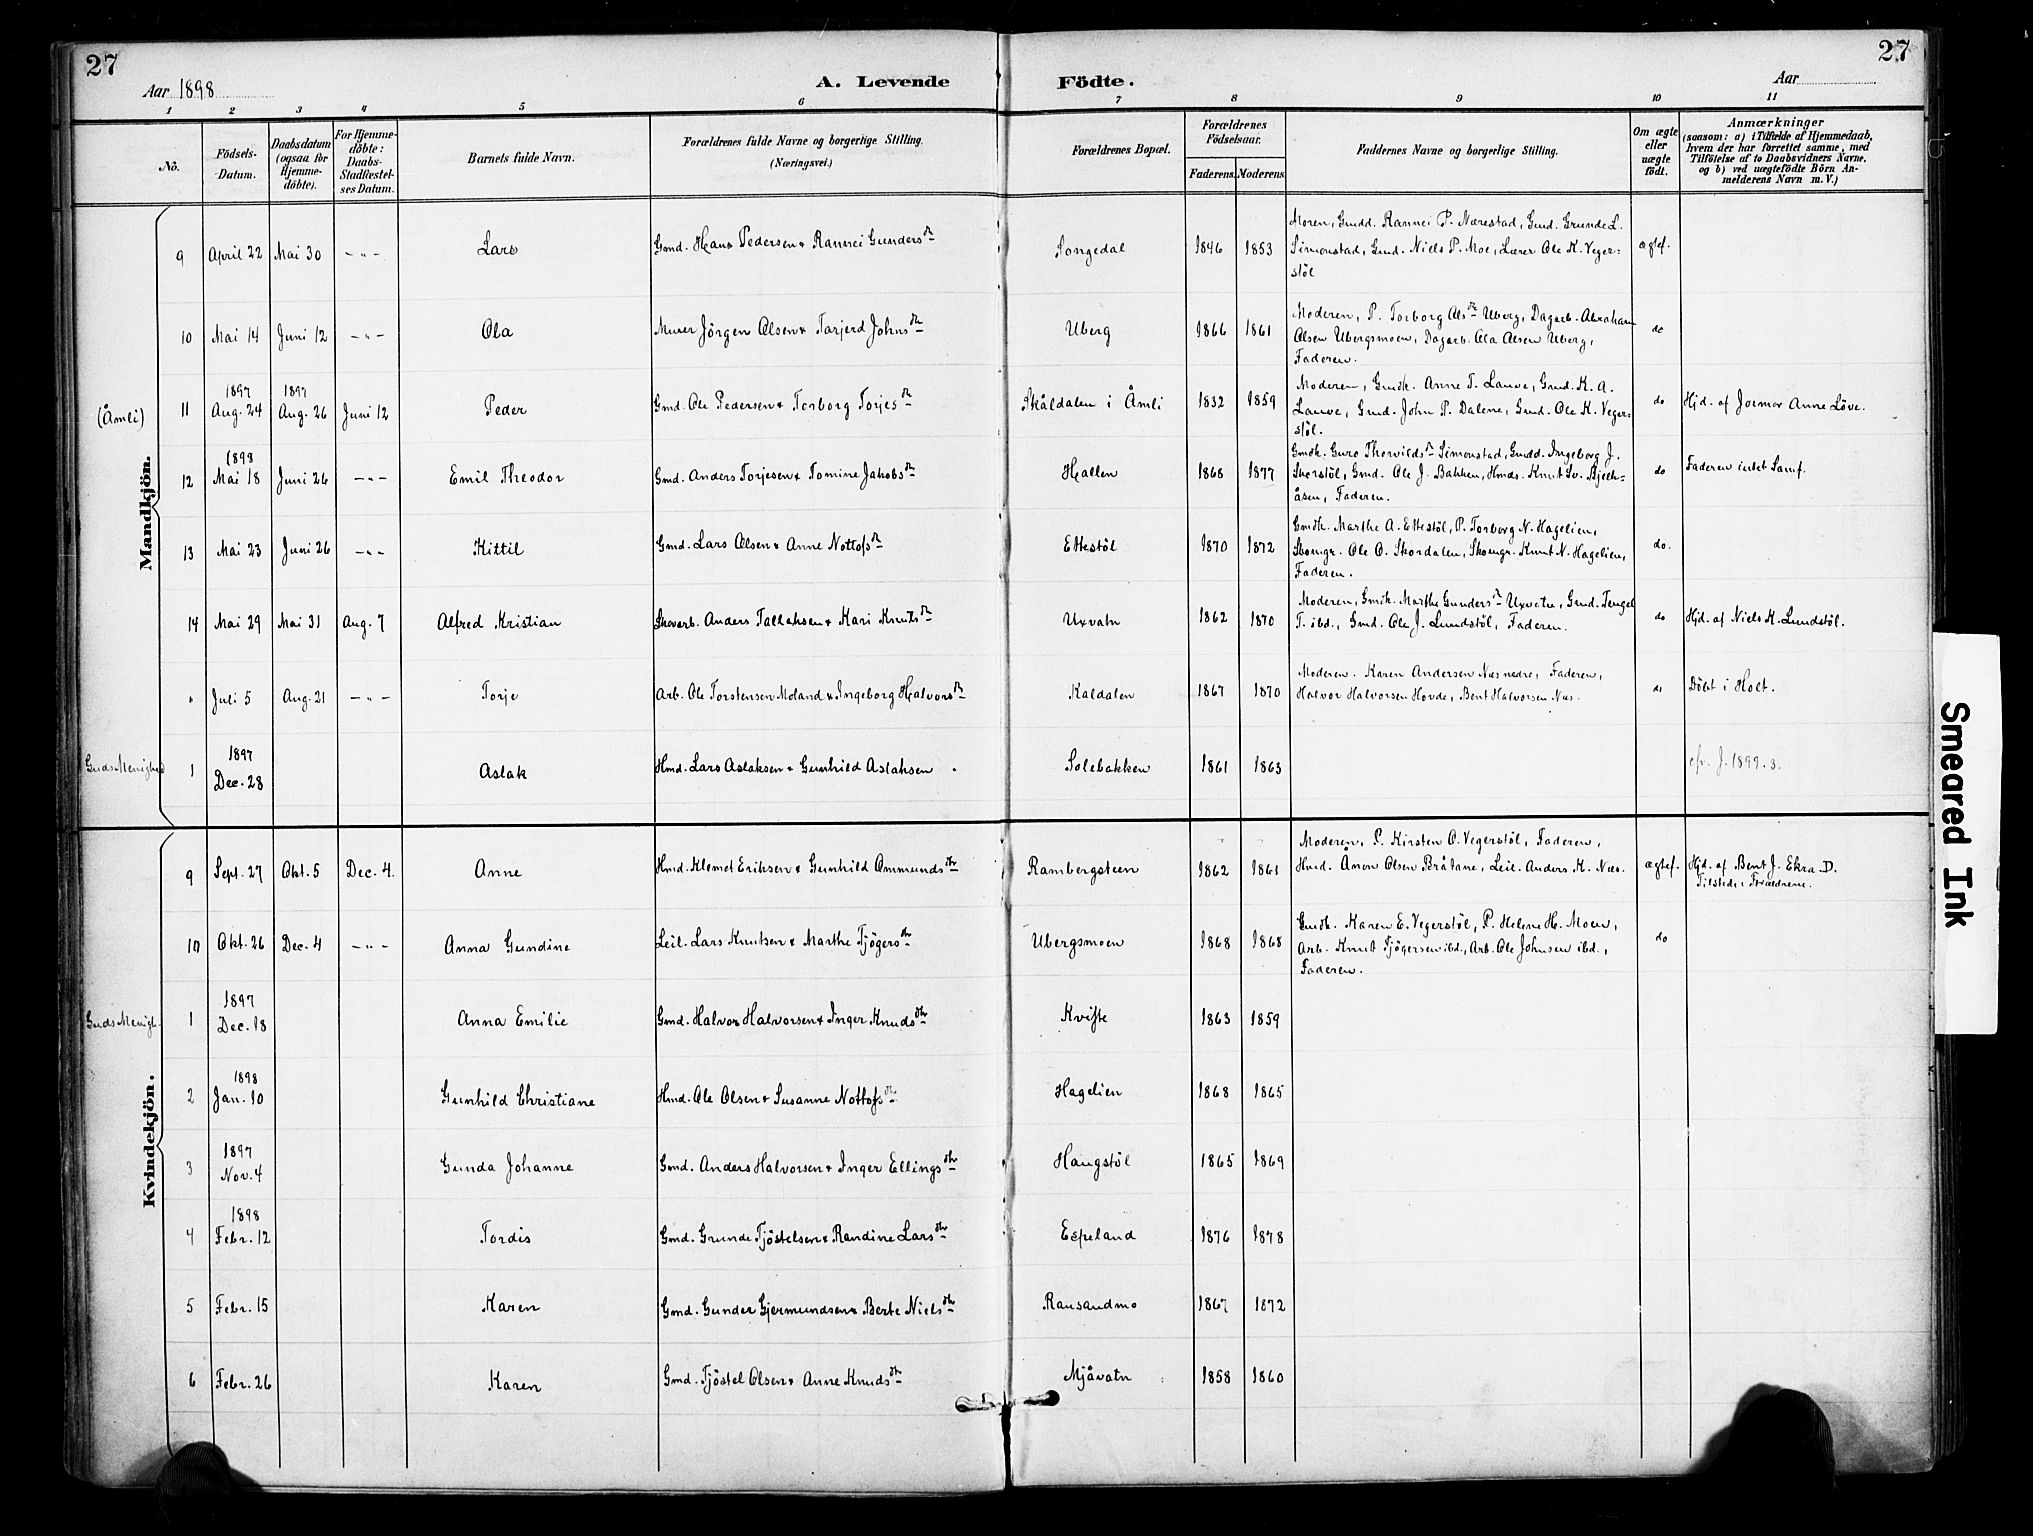 27
27
Aar 1898
A. Levende
Födte.
Aar
1 2 3 4 5 6 7 8 9 10 11
Nô.
Födsels-Datum.
Daabsdatum (ogsaa for Hjemmedöbte).
For Hjemmedöbte: Daabs-Stadfæstelses Datum.
Barnets fulde Navn.
Forældrenes fulde Navne og borgerlige Stilling.
(Næringsvei.)
Forældrenes Bopæl.
Forældrenes Födselsaar.
Faderens. Moderens.
Faddernes Navne og borgerlige Stilling.
Om ægte eller uægte födt.
Anmærkninger
(saasom: a) i Tilfælde af Hjemmedaab,
hvem der har forrettet samme, med
Tilföielse af to Daabsvidners Navne,
og b) ved uægtefödte Börn An-
melderens Navn m. V.)
Mandkjön.
9 April 22 Mai 30 -"- Lars Gmd. Hans Pedersen & Rannei Gundersdr Songedal 1846 1853 Moren, Gmdd. Rannei P. Nærestad, Gmd. Grunde L.
Simonstad, Gmd. Niels P. Moe, Lærer Ole K. Veger-
støl ægtef.
10 Mai 14 Juni 12 -"- Ola Murer Jörgen Olsen & Tarjerd Johnsdtr Uberg 1866 1861 Moderen, P. Torborg Alsdr Uberg, Dagarb. Abraham
Olsen Ubergsmoen, Dagarb. Ola Olsen Uberg,
Faderen. do
(Åmli) 11 1897 Aug. 24 1897 Aug. 26 Juni 12 Peder Gmd. Ole Pedersen & Torborg Torjesdr Skåldalen i Åmli 1832 1859 Moderen, Gmdk. Anne T. Lauve, Gmd. K. A.
Lauve, Gmd. John P. Dalene, Gmd. Ole K. Veger-
støl. do Hjd. af Jormor Anne Löve.
12 1898 Mai 18 Juni 26 -"- Emil Theodor Gmd. Anders Torjesen & Tomine Jakobsdr Hallen 1868 1877 Gmdk. Guro Thorvildsdr Simonstad, Gmdd. Ingeborg J.
Skorstöl, Gmd. Ole J. Bakken, Hmds. Knut Sv. Bjelk-
åsen, Faderen. do Faderen intet Samf.
13 Mai 23 Juni 26 -"- Kittil Gmd. Lars Olsen & Anne Nottofsdr Ettestöl 1870 1872 Gmdk. Marthe A. Ettestöl, P. Torborg N. Hagelien,
Skomgr. Ole O. Skordalen, Skomgr. Knut N. Hagelien,
Faderen. do.
14 Mai 29 Mai 31 Aug. 7 Alfred Kristian Skovarb. Anders Tallaksen & Kari Knutsdr Uxvatn 1862 1870 Moderen, Gmdk. Marthe Gundersdr Uxvatn, Gmd. Tengel
T. ibd., Gmd. Ole J. Lundstöl, Faderen. do Hjd. af Niels K. Lundstöl.
" Juli 5 Aug. 21 -"- Torje Arb. Ole Torstensen Moland & Ingeborg Halvorsdr Kaldalen 1867 1870 Moderen. Karen Andersen Næs nedre, Faderen,
Halvor Halvorsen Hovde, Bent Halvorsen Næs. do Döbt i Holt.
Guds Menighed 1 1897 Dec. 28 Aslak Hmd. Lars Aslaksen & Gunhild Aslaksen Solebakken 1861 1863 cfr. J. 1899. 3.
Kvindekjön.
9 Sept. 27 Okt. 5 Dec. 4. Anne Hmd. Klemet Eriksen & Gunhild Ommundsdtr Rambergsteen 1862 1861 Moderen, P. Kirsten O. Vegerstöl, Faderen,
Hmd. Ånon Olsen Bråtane, Leil. Anders K. Næs. ægtef. Hjd. af Bent J. Ekra. D.
Tilstede: Forældrene.
10 Okt. 26 Dec. 4 -"- Anna Gundine Leil. Lars Knutsen & Marthe Tjögersdtr Ubergsmoen 1868 1868 Gmdk. Karen E. Vegerstöl, P. Helene H. Moen,
Arb. Knut Tjögersen ibd., Arb. Ole Johnsen ibd.,
Faderen. do
Guds Menigh. 1 1897 Dec. 18 Anna Emilie Gmd. Halvor Halvorsen & Inger Knudsdtr Kvifte 1863 1859
2 1898 Jan. 10 Gunhild Christiane Hmd. Ole Olsen & Susanne Nottofsdtr Hagelien 1868 1865
3 1897 Nov. 4 Gunda Johanne Gmd. Anders Halvorsen & Inger Ellingsdtr Haugstöl 1865 1869
4 1898 Febr. 12 Tordis Gmd. Grunde Tjöstelsen & Randine Larsdtr Espeland 1876 1878
5 Febr. 15 Karen Gmd. Gunder Gjermundsen & Berte Nielsdtr Rausandmo 1867 1872
6 Febr. 26 Karen Gmd. Tjöstel Olsen & Anne Knudsdtr Mjåvatn 1858 1860
Smeared Ink